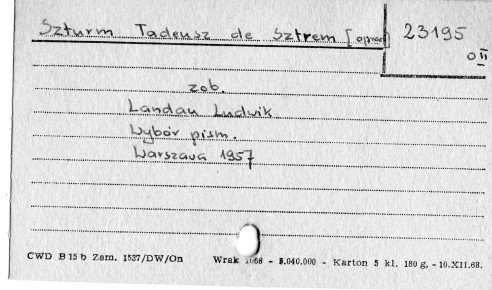 Szturm Tadeusz de Sztrem [oprac] 23195
O II
zob.
Landau Ludwik
Wybór pism.
Warszawa 1957
CWD B 15 b Zam. 1537/DW/On Wrak 1068 - 8.040.000 - Karton 5 kl. 180 g. - 10.XII.68.